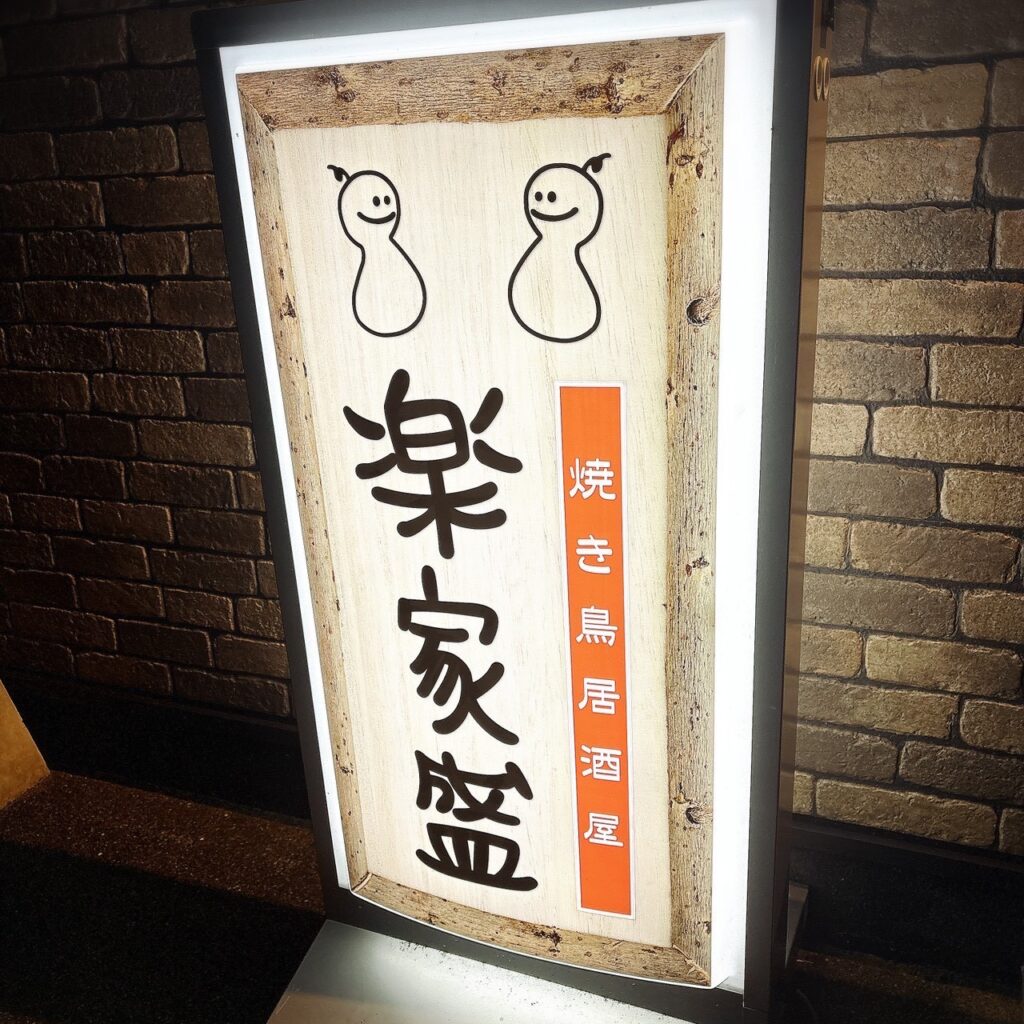 焼き鳥居酒屋
楽家盛